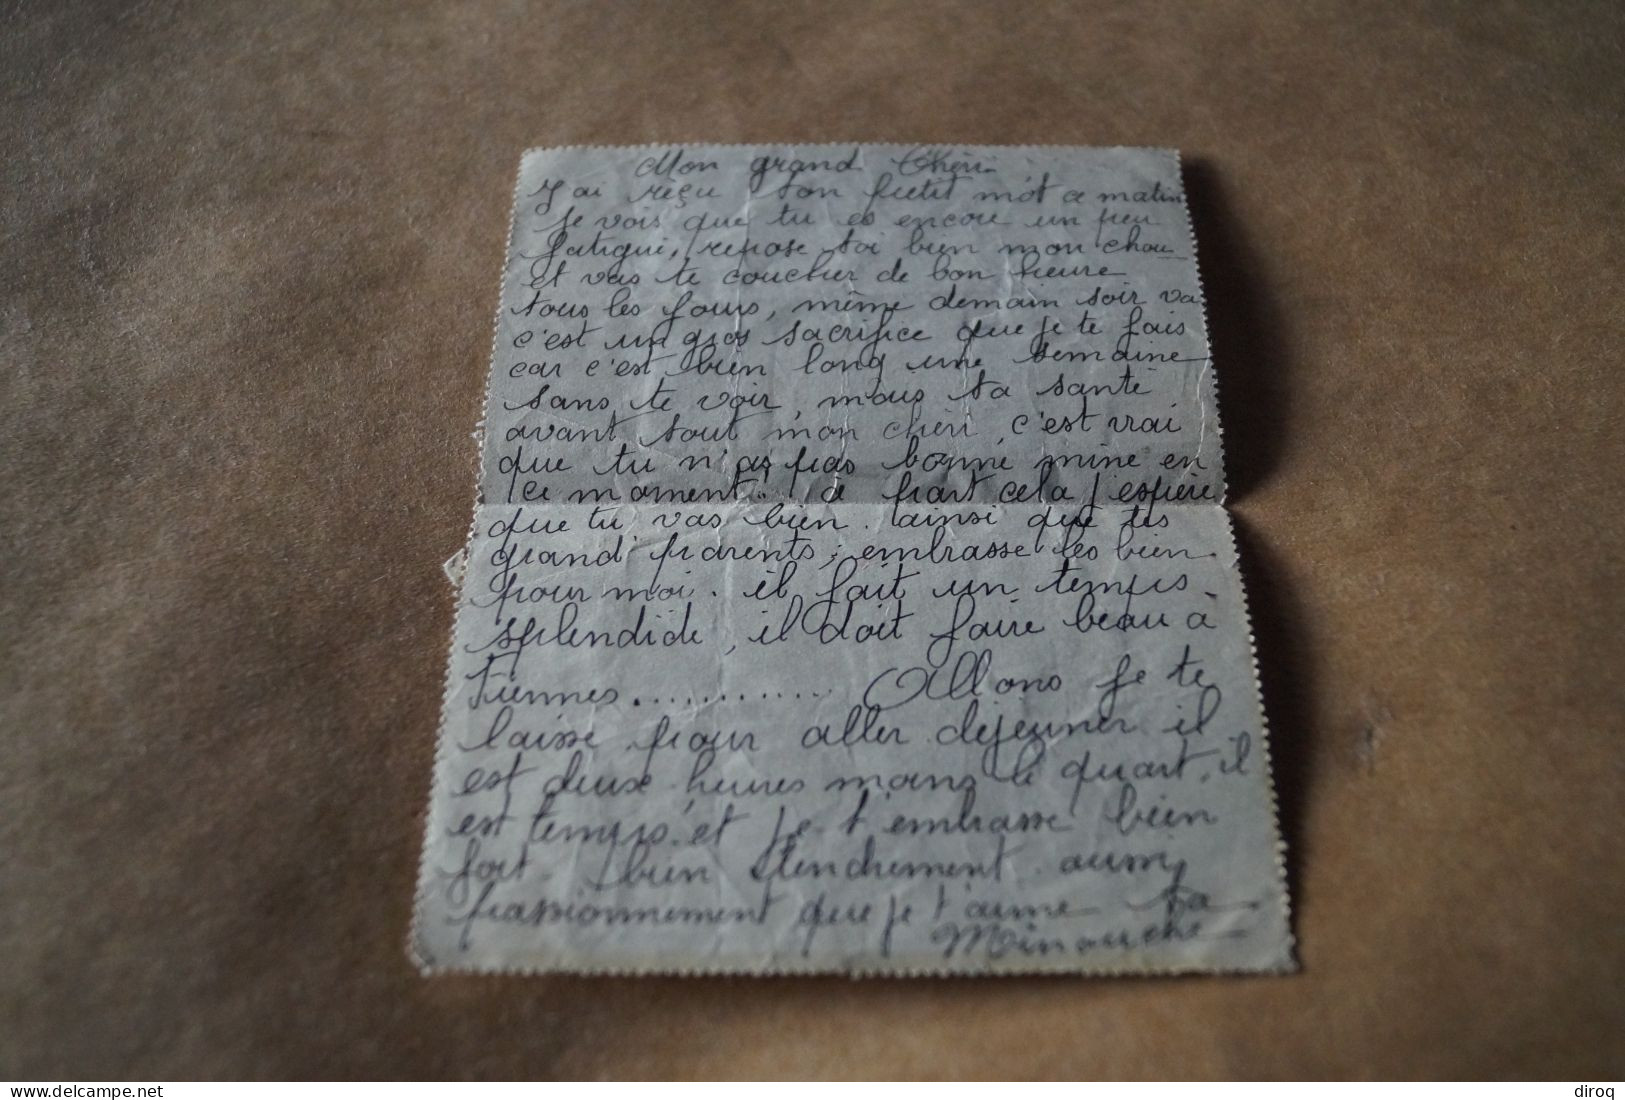 Mon grand Chéri.
J'ai rèçu ton petit mot ce matin
Je vois que tu es encore un peu
fatigué, repose toi bien mon chou
et vas te coucher de bon heure
tous les jours, même demain soir va
c'est un gros sacrifice que je te fais
car c'est bien long une semaine
sans te voir, mais ta santé
avant tout mon chéri, c'est vrai
que tu n'as pas bonne mine en
ce moment! à part cela j'espère
que tu vas bien. ainsi que tes
grand' parents; embrasse les bien
pour moi. il fait un temps
splendide, il doit faire beau à
Fiennes............ Allons je te
laisse pour aller déjeuner il
est deux heures moins le quart. il
est temps. et je t'embrasse bien
fort. bien tendrement. aussi
passionnement que je t'aime Ta
Minouche
www.delcampe.net
diroq